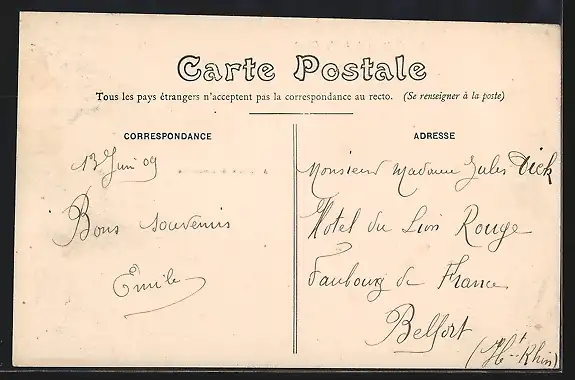 Carte Postale
Tous les pays étrangers n'acceptent pas la correspondance au recto. (Se renseigner à la poste)
CORRESPONDANCE
ADRESSE
13 Juin 09
Bons souvenirs
Emile
Monsieur Madame Jules Dick
Hotel du Lion Rouge
Faubourg de France
Belfort
(Ht-Rhin)